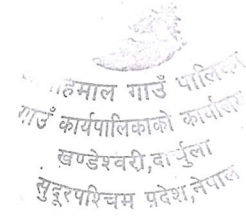 गाउँ पालिका
गाउँ कार्यपालिकाको कार्यालय
खण्डेश्वरी,दार्चुला
सुदूरपश्चिम प्रदेश,नेपाल